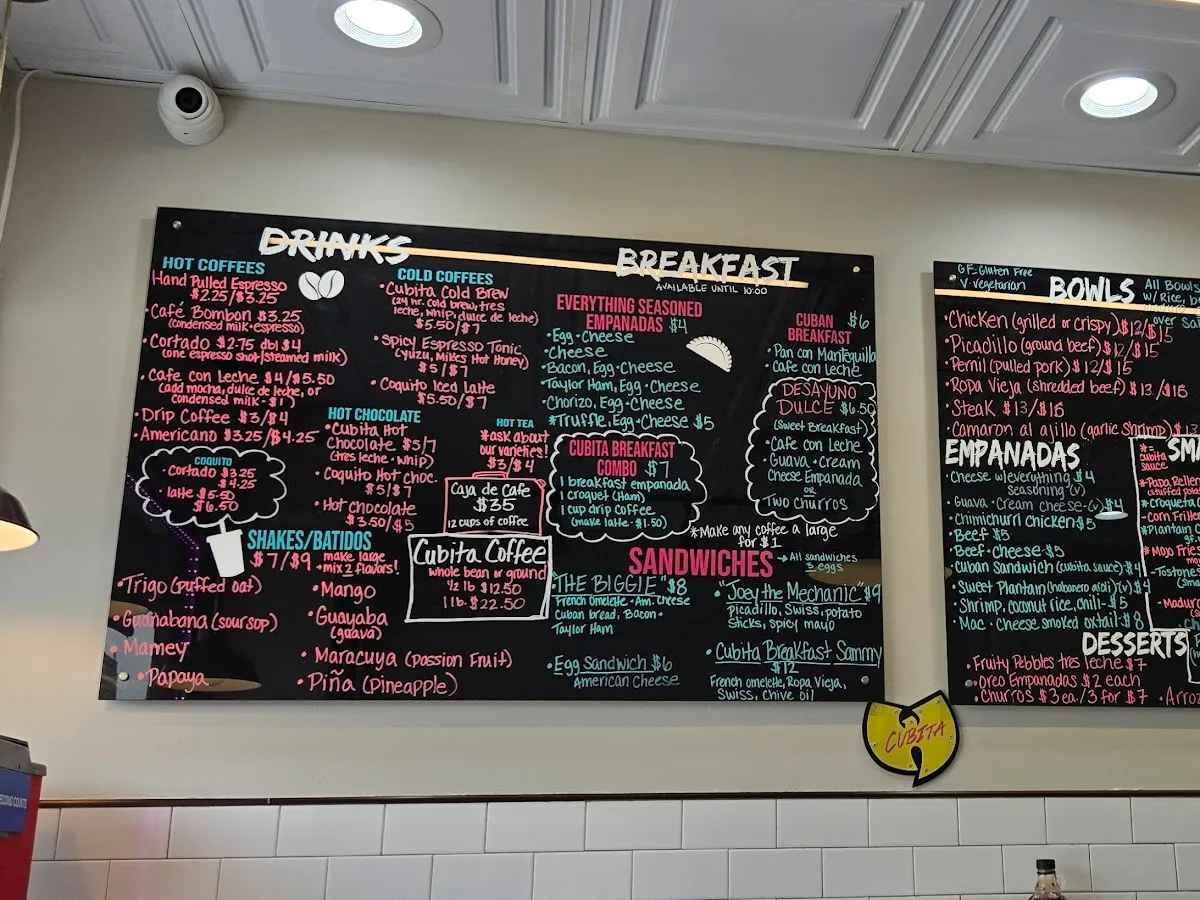 DRINKS
HOT COFFEES
Hand Pulled Espresso
$2.25/$3.25
•Café Bombon $3.25
(condensed milk•espresso)
•Cortado $2.75 dbl $4
(one espresso shot/steamed milk)
•Cafe con Leche $4/$5.50
(add mocha, dulce de leche, or
condensed milk - $1)
•Drip Coffee $3/$4
•Americano $3.25/$4.25
COQUITO
•Cortado $3.25
$4.25
•latte $5.50
$6.50
COLD COFFEES
•Cubita Cold Brew
(24 hr. cold brew, tres
leche, whip, dulce de leche)
$5.50/$7
•Spicy Espresso Tonic
(yuzu, Mike's Hot Honey)
$5/$7
•Coquito Iced latte
$5.50/$7
HOT CHOCOLATE
•Cubita Hot
Chocolate $5/7
(tres leche•whip)
•Coquito Hot choc.
$5/$7
•Hot chocolate
$3.50/$5
HOT TEA
*ask about
our varieties!
$3/$4
Caja de Cafe
$35
12 cups of coffee
Cubita Coffee
whole bean or ground
1/2 lb $12.50
1 lb $22.50
SHAKES/BATIDOS
$7/$9 make large
•mix 2 flavors!
•Trigo (puffed oat)
•Guanabana (soursop)
•Mamey
•Papaya
•Mango
•Guayaba
(guava)
•Maracuya (passion Fruit)
•Piña (pineapple)
BREAKFAST
AVAILABLE UNTIL 10:00
EVERYTHING SEASONED
EMPANADAS $4
•Egg•Cheese
•Cheese
•Bacon, Egg•Cheese
Taylor Ham, Egg•Cheese
•Chorizo, Egg•Cheese
*Truffle, Egg•Cheese $5
CUBITA BREAKFAST
COMBO $7
1 breakfast empanada
1 croquet (Ham)
1 cup drip coffee
(make latte•$1.50)
CUBAN $6
BREAKFAST
•Pan con Mantequilla
•Cafe con Leche
DESAYUNO
DULCE $6.50
(Sweet Breakfast)
•Cafe con Leche
•Guava•Cream
Cheese Empanada
or
Two Churros
*Make any coffee a large
for $1
SANDWICHES
→All sandwiches
3 eggs
"THE BIGGIE" $8
French omelette•Am. cheese
Cuban bread, Bacon•
Taylor Ham
•Egg Sandwich $6
American Cheese
•"Joey the Mechanic" $9
picadillo, Swiss, potato
sticks, spicy mayo
•Cubita Breakfast Sammy
$12
French omelette, Ropa Vieja,
Swiss, Chive oil
GF-Gluten Free
V-vegetarian
BOWLS
All Bowls
w/Rice,
over
•Chicken (grilled or crispy) $12/$15
•Picadillo (ground beef) $12/$15
•Pernil (pulled pork) $12/$15
•Ropa Vieja (shredded beef) $13/$15
•Steak $13/$16
•Camaron al ajillo (garlic shrimp) $13
EMPANADAS
Cheese w/everything $4
seasoning (v)
•Guava•Cream cheese-(v) $4
•Chimichurri chicken $5
•Beef $5
•Beef•cheese-$5
•Cuban Sandwich (cubita sauce) $4
•Sweet Plantain (habanero aioli) (v) $4
•Shrimp, coconut rice, chili-$5
•Mac•Cheese smoked oxtail-$8
*=
cubita
sauce
*Papa Rellen
(stuffed pot
*croqueta
-Corn Fritte
*Plantain
gf
*Mojo Fries
-Tostones
(sma
-Madur
DESSERTS
•Fruity Pebbles tres leche $7
•Oreo Empanadas $2 each
•Churros $3 ea./3 for $7
•Arroz
CUBITA
SECOND COUNTS